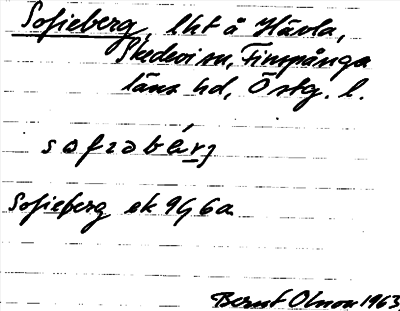 Sofieberg, lht å Hävla,
Skedevi sn, Finspånga
läns hd, Östg. l.
sofiabärj
Sofieberg ek 9G 6a
Bernt Olsson 1963.